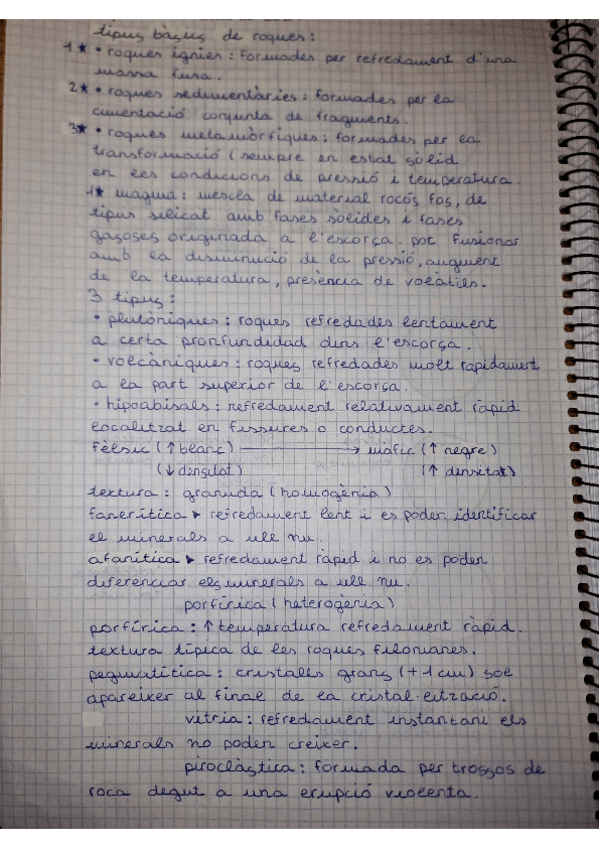 tipus bàsics de roques:
1★ • roques ígnies: formades per refredament d'una
massa fusa.
2★ • roques sedimentàries: formades per la
cimentació conjunta de fragments.
3★ • roques metamòrfiques: formades per la
transformació (sempre en estat sòlid
en les condicions de pressió i temperatura.
1★ magma: mescla de material rocós fos, de
tipus silicat amb fases sòlides i fases
gasoses originada a l'escorça. pot fusionar
amb la disminució de la pressió, augment
de la temperatura, presència de volàtils.
3 tipus:
• plutòniques: roques refredades lentament
a certa pronfundidad dins l'escorça.
• volcàniques: roques refredades molt rapidament
a la part superior de l'escorça.
• hipoabisals: refredament relativament ràpid
localitzat en fissures o conductes.
fèlsic (↑ blanc) → màfic (↑ negre)
(↓ densitat) (↑ densitat)
textura: granuda (homogènia)
fanerítica ▸ refredament lent i es poden identificar
el minerals a ull nu.
afanítica ▸ refredament ràpid i no es poden
diferenciar els minerals a ull nu.
porfírica (heterogènia)
porfírica: ↑ temperatura refredament ràpid.
textura típica de les roques filonianes.
pegmatítica: cristalls grans (+1cm) sol
apareixer al final de la cristal·lització.
vítria: refredament instantani els
minerals no poden creixer.
piroclàstica: formada per trossos de
roca degut a una erupció violenta.